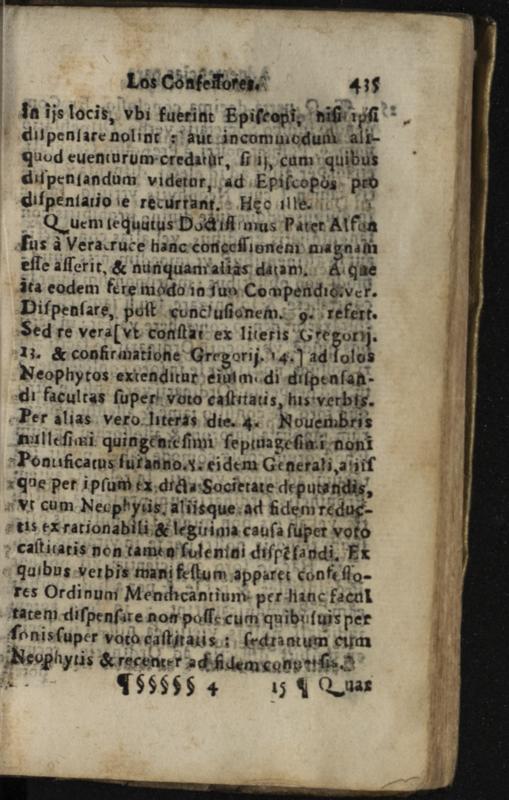 Los Confessores. 435
In ijs locis, vbi fuerint Episcopi, nisi ipsi
dispensare nolint : aut incommodum ali-
quod euenturum credatur, si ij, cum quibus
dispensandum videtur, ad Episcopos pro
dispensatio e recurrant. Hęc ille.
Quem sequutus Doctissimus Pater Alfon
sus à Veracruce hanc concessionem magnam
esse asserit, & nunquam alias datam. A que
ita eodem fere modo in suo Compendio. ver.
Dispensare, post conclusionem. 9. refert.
Sed re vera [vt constat ex literis Gregorij.
13. & confirmatione Gregorij. 14.] ad solos
Neophytos extenditur eiusmodi dispensan-
di facultas super voto castitatis, his verbis.
Per alias vero literas die. 4. Nouembris
millesimi quingentesimi septuagesimi noni
Pontificatus sui anno. 8. eidem Generali, aliis
que per ipsum ex dicta Societate deputandis,
vt cum Neophytis, aliisque ad fidem reduc-
tis ex rationabili & legitima causa super voto
castitatis non tamen solenini dispēsandi. Ex
quibus verbis manifestum apparet confesso-
res Ordinum Mendicantium per hanc facul
tatem dispensare non posse cum quibusuis per
sonis super voto castitatis : sed tantum cum
Neophytis & recenter ad fidem conuersis.
¶§§§§§ 4 15 ¶ Quas